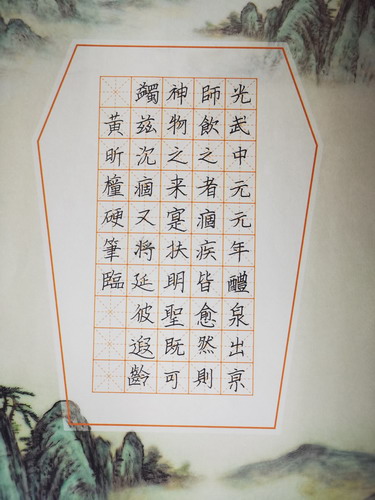 光武中元元年醴泉出京
師飲之者痼疾皆愈然則
神物之来寔扶明聖既可
蠲茲沉痼又将延彼遐齡
黃昕橦硬筆臨